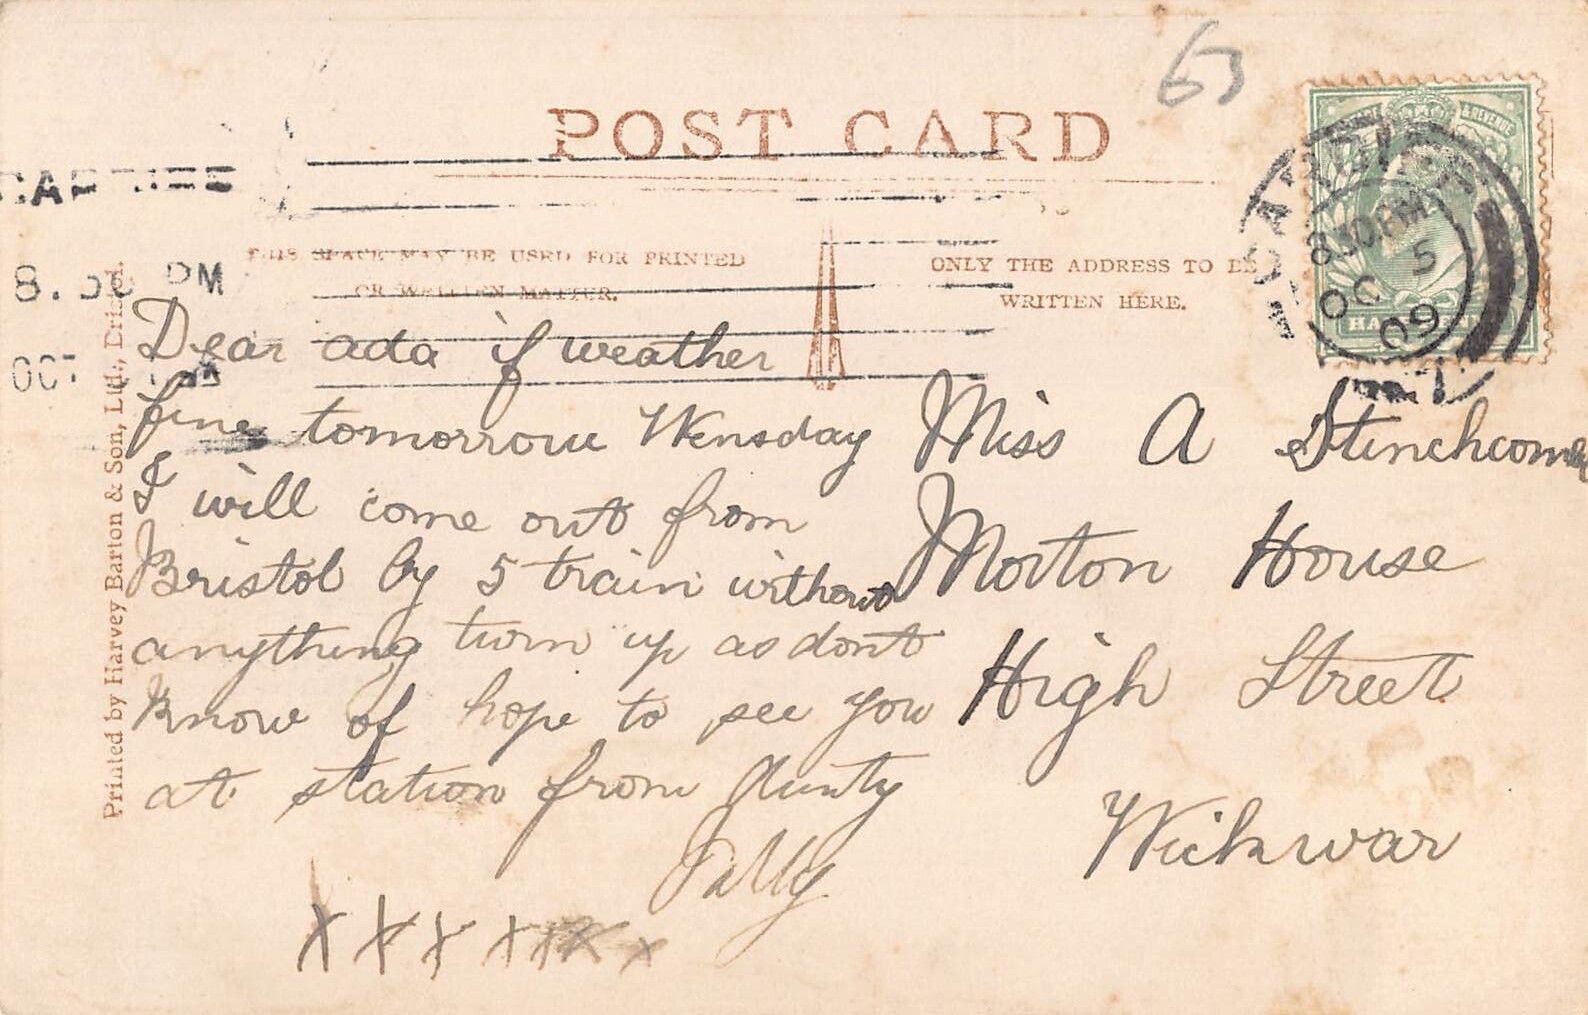 63
POST CARD
& REVENUE
CARDIFF
8.30 PM
OC 5
09
HALFPENNY
8.30 PM
OCT 5 09
THIS SPACE MAY BE USED FOR PRINTED
OR WRITTEN MATTER.
ONLY THE ADDRESS TO BE
WRITTEN HERE.
Printed by Harvey Barton & Son, Ltd., Bristol.
Dear ada if weather
fine tomorrow Wensday
I will come out from
Bristol by 5 train without
anything turn up as dont
know of hope to see you
at station from Aunty
Polly
X X X X X X X
Miss A Stinchcombe
Morton House
High Street
Wickwar